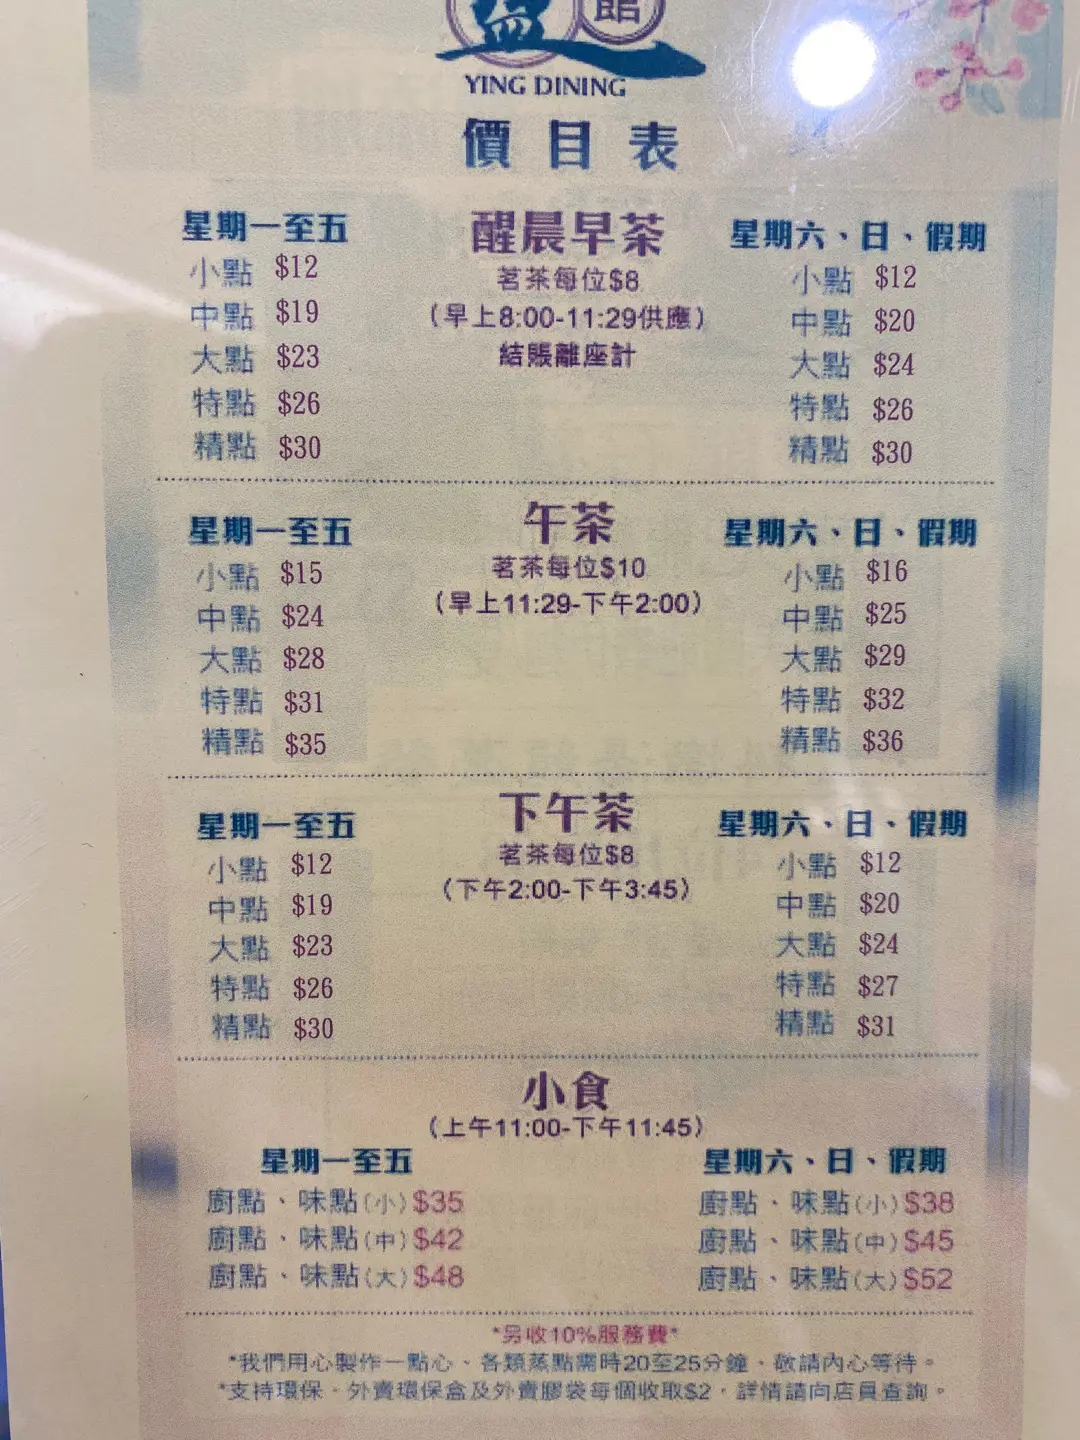 盈
館
YING DINING
價目表
星期一至五
小點 $12
中點 $19
大點 $23
特點 $26
精點 $30
醒晨早茶
茗茶每位$8
(早上8:00-11:29供應)
結賬離座計
星期六、日、假期
小點 $12
中點 $20
大點 $24
特點 $26
精點 $30
星期一至五
小點 $15
中點 $24
大點 $28
特點 $31
精點 $35
午茶
茗茶每位$10
(早上11:29-下午2:00)
星期六、日、假期
小點 $16
中點 $25
大點 $29
特點 $32
精點 $36
星期一至五
小點 $12
中點 $19
大點 $23
特點 $26
精點 $30
下午茶
茗茶每位$8
(下午2:00-下午3:45)
星期六、日、假期
小點 $12
中點 $20
大點 $24
特點 $27
精點 $31
小食
(上午11:00-下午11:45)
星期一至五
廚點、味點(小)$35
廚點、味點(中)$42
廚點、味點(大)$48
星期六、日、假期
廚點、味點(小)$38
廚點、味點(中)$45
廚點、味點(大)$52
*另收10%服務費*
*我們用心製作一點心、各類蒸點需時20至25分鐘、敬請內心等待。
*支持環保、外賣環保盒及外賣膠袋每個收取$2，詳情請向店員查詢。